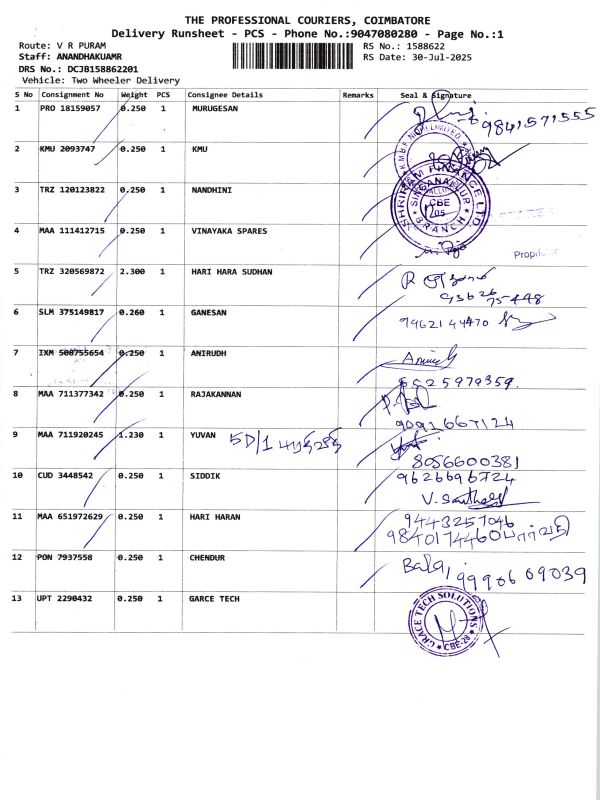 THE PROFESSIONAL COURIERS, COIMBATORE
Delivery Runsheet - PCS - Phone No.:9047080280 - Page No.:1
Route: V R PURAM RS No.: 1588622
Staff: ANANDHAKUAMR RS Date: 30-Jul-2025
DRS No.: DCJB158862201
Vehicle: Two Wheeler Delivery
S No Consignment No Weight PCS Consignee Details Remarks Seal & Signature
1 PRO 18159057 0.250 1 MURUGESAN 9841571555
2 KMU 2093747 0.250 1 KMU
3 TRZ 120123822 0.250 1 NANDHINI SHRIRAM FINANCE LTD. SINGANALLUR CBE BRANCH
4 MAA 111412715 0.250 1 VINAYAKA SPARES
5 TRZ 320569872 2.300 1 HARI HARA SUDHAN
6 SLM 375149817 0.260 1 GANESAN 9962144470
7 IXM 500755654 0.250 1 ANIRUDH
8 MAA 711377342 0.250 1 RAJAKANNAN 9091667124
9 MAA 711920245 1.230 1 YUVAN 5D/1 8056600381
10 CUD 3448542 0.250 1 SIDDIK 9626696724
11 MAA 651972629 0.250 1 HARI HARAN 9443257046
9840174460 பார்வதி
12 PON 7937558 0.250 1 CHENDUR Balaji 9990609039
13 UPT 2290432 0.250 1 GARCE TECH GRACE TECH SOLUTIONS CBE-28